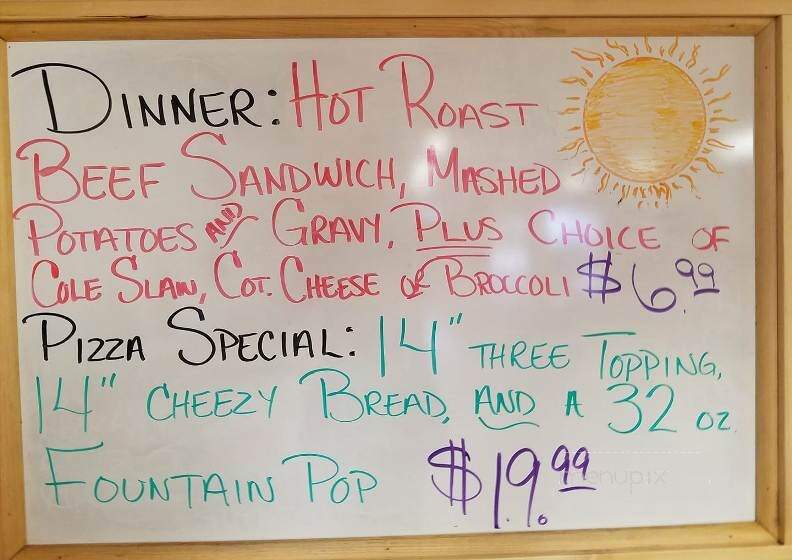 DINNER: HOT ROAST
BEEF SANDWICH, MASHED
POTATOES AND GRAVY, PLUS CHOICE OF
COLE SLAW, COT. CHEESE OR BROCCOLI $6.99
PIZZA SPECIAL: 14" THREE TOPPING,
14" CHEEZY BREAD, AND A 32 OZ.
FOUNTAIN POP $19.99
menupix